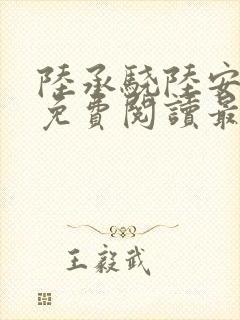 陸承驍陸安
免費閱讀最
王毅武